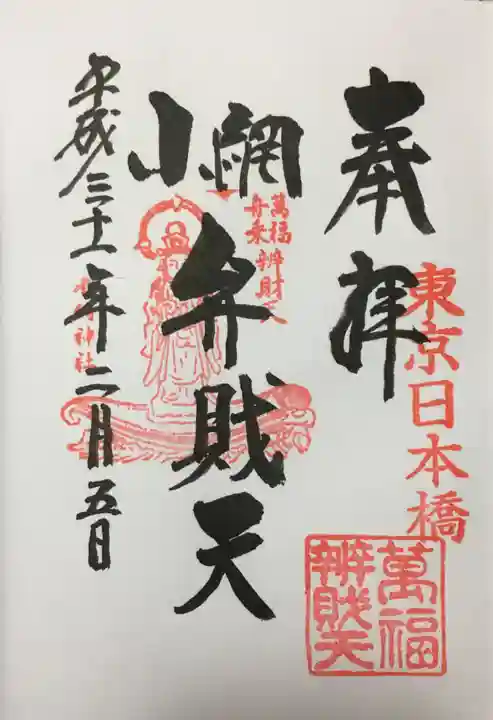 奉拝
東京日本橋
萬福
辨財天
小網
弁財天
萬福
舟乗
辨財天
平成三十一年二月五日
神社